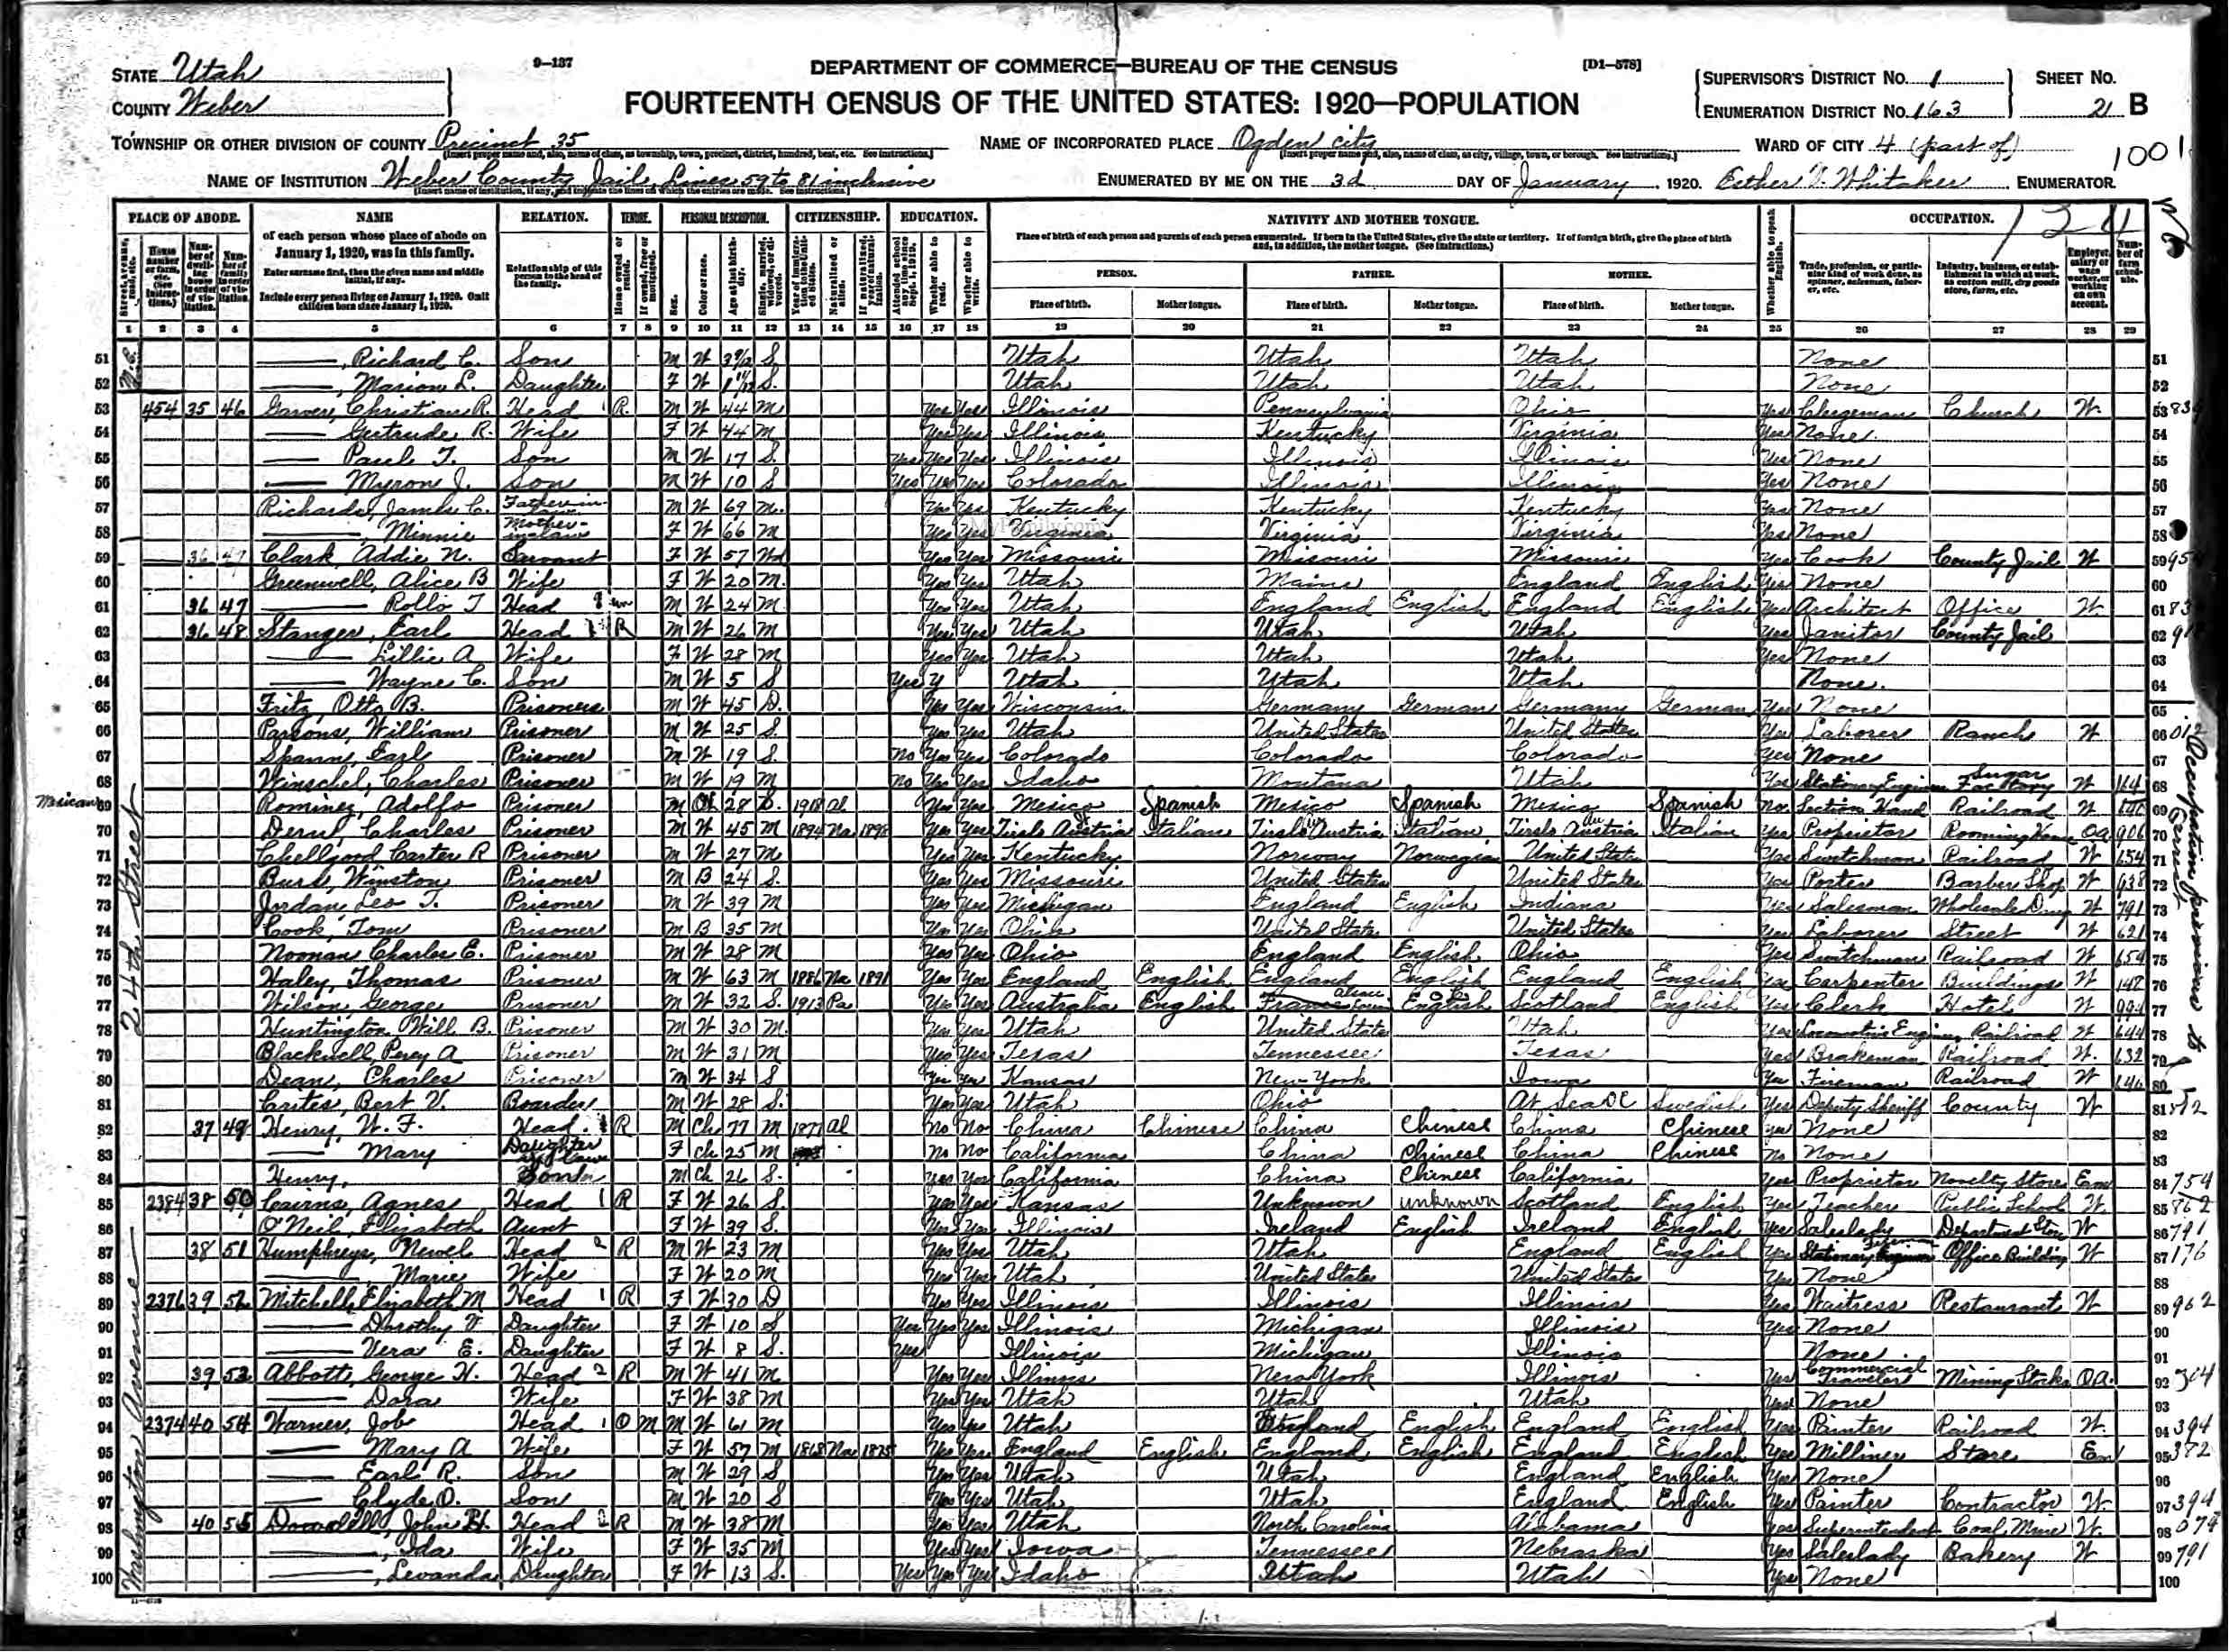 9—137
DEPARTMENT OF COMMERCE—BUREAU OF THE CENSUS
[D1—578]
STATE Utah
COUNTY Weber
FOURTEENTH CENSUS OF THE UNITED STATES: 1920—POPULATION
SUPERVISOR'S DISTRICT No. 1
ENUMERATION DISTRICT No. 163
SHEET No. 21 B
TOWNSHIP OR OTHER DIVISION OF COUNTY Precinct 35
NAME OF INCORPORATED PLACE Ogden city
WARD OF CITY 4 (part of)
1001
NAME OF INSTITUTION Weber County Jail Lines 59 to 81 inclusive
ENUMERATED BY ME ON THE 3d DAY OF January, 1920. Esther V. Whitaker ENUMERATOR.
124
PLACE OF ABODE. NAME RELATION. TENURE. PERSONAL DESCRIPTION. CITIZENSHIP. EDUCATION. NATIVITY AND MOTHER TONGUE. OCCUPATION.
of each person whose place of abode on January 1, 1920, was in this family.
Enter surname first, then the given name and middle initial, if any.
Include every person living on January 1, 1920. Omit children born since January 1, 1920.
Relationship of this person to the head of the family.
Place of birth of each person and parents of each person enumerated. If born in the United States, give the state or territory. If of foreign birth, give the place of birth and, in addition, the mother tongue. (See instructions.)
PERSON. FATHER. MOTHER.
Place of birth. Mother tongue. Place of birth. Mother tongue. Place of birth. Mother tongue.
1 2 3 4 5 6 7 8 9 10 11 12 13 14 15 16 17 18 19 20 21 22 23 24 25 26 27 28 29
51 Richard C. Son M W 3 S Utah Utah Utah None 51
52 Marion L. Daughter F W 1 S. Utah Utah Utah None 52
53 454 35 46 Christian R. Head R M W 44 M Yes Yes Illinois Pennsylvania Ohio Yes Church W 53
54 Gertrude R. Wife F W 44 M Yes Yes Illinois Kentucky Virginia Yes None 54
55 Paul T. Son M W 17 S. Yes Yes Yes Illinois Illinois Illinois Yes None 55
56 Myron J. Son M W 10 S Yes Yes Yes Colorado Illinois Illinois Yes None 56
57 C. Father-in-law M W 69 M. Yes Yes Kentucky Kentucky Kentucky Yes None 57
58 Minnie Mother-in law F W 66 M Yes Yes Virginia Virginia Virginia Yes None 58
59 36 47 Clark, Addie N. Servant F W 57 Wd Yes Yes Missouri Missouri Missouri Yes Cook County Jail W 59
60 Greenwell, Alice B Wife F W 20 M. Yes Yes Utah Maine England English Yes None 60
61 36 47 Rollo T Head M W 24 M Yes Yes Utah England English England English Yes Architect Office W 61
62 36 48 Stanger, Earl Head R M W 26 M Yes Yes Utah Utah Utah Yes Janitor County Jail 62
63 Lillie A Wife F W 28 M Yes Yes Utah Utah Utah Yes None 63
64 Wayne C. Son M W 5 S Yes Y Utah Utah Utah None. 64
65 Fritz, Otto B. Prisoner M W 45 D. Yes Yes Wisconsin Germany German Germany German Yes None 65
66 Parsons, William Prisoner M W 25 S. Yes Yes Utah United States United States Yes Laborer Ranch W 66
67 Spann, Earl Prisoner M W 19 S. No Yes Yes Colorado Colorado Colorado Yes None 67
68 Winschel, Charles Prisoner M W 19 M No Yes Yes Idaho Montana Utah Yes Stationary Engineer Sugar Factory W 164 68
Mexican 69 Rominez, Adolfo Prisoner M 28 S. 1918 Al Yes Yes Mexico Spanish Mexico Spanish Mexico Spanish No Section Hand Railroad W 69
70 Charles Prisoner M W 45 M 1894 Na 1898 Yes Yes Austria Italian Austria Italian Austria Italian Yes Proprietor Rooming House OA 906 70
71 Chellgood Carter R Prisoner M W 27 M Yes Yes Kentucky Norway Norwegian United States Yes Switchman Railroad W 654 71
72 Winston Prisoner M B 24 S. Yes Yes Missouri United States United States Yes Porter Barber Shop W 938 72
73 Jordan, Leo T. Prisoner M W 39 M Yes Yes Michigan England English Indiana Yes Salesman Wholesale Drug W 791 73
74 Cook, Tom Prisoner M B 35 M Yes Yes Ohio United States United States Yes Laborer Street W 621 74
75 Noonan Charles E. Prisoner M W 28 M Yes Yes Ohio England English Ohio Yes Switchman Railroad W 654 75
76 Haley, Thomas Prisoner M W 63 M 1886 Na 1891 Yes Yes England English England English England English Yes Carpenter Buildings W 148 76
77 Wilson, George Prisoner M W 32 S. 1913 Pa Yes Yes Australia English France English Scotland English Yes Clerk Hotel W 994 77
78 Huntington, Will B. Prisoner M W 30 M. Yes Yes Utah United States Utah Yes Locomotive Engineer Railroad W 644 78
79 Blackwell, Percy A Prisoner M W 31 M Yes Yes Texas Tennessee Texas Yes Brakeman Railroad W. 632 79
80 Dean, Charles Prisoner M W 34 S Yes Yes Kansas New York Iowa Yes Fireman Railroad W 646 80
81 Crites, Bert V. Boarder M W 28 S. Yes Yes Utah Ohio At Sea Swedish Yes Deputy Sheriff County W 81
82 37 49 Henry, W. F. Head R M Ch 77 M 1877 Al No No China Chinese China Chinese China Chinese Yes None 82
83 Mary Daughter in law F Ch 25 M No No California China Chinese China Chinese No None 83
84 Henry, M Ch 26 S. Yes Yes California China Chinese California Yes Proprietor Novelty Store Em 84 754
85 2384 38 50 Cairns, Agnes Head 1 R F W 26 S. Yes Yes Kansas Unknown unknown Scotland English Yes Teacher Public School W 85 862
86 O'Neil, Elizabeth Aunt F W 39 S. Yes Yes Illinois Ireland English Ireland English Yes Saleslady Department Store W 86 791
87 38 51 Humphreys, Newel Head 2 R M W 23 M Yes Yes Utah Utah England English Yes Stationary Fireman Office Building W 87 176
88 Marie Wife F W 20 M Yes Yes Utah United States United States Yes None 88
89 2376 39 52 Mitchell, Elizabeth M Head 1 R F W 30 D Yes Yes Illinois Illinois Illinois Yes Waitress Restaurant W 89 962
90 Dorothy V Daughter F W 10 S Yes Yes Yes Illinois Michigan Illinois Yes None 90
91 Vera E. Daughter F W 8 S. Yes Illinois Michigan Illinois None 91
92 39 53 Abbott, George H. Head 2 R M W 41 M Yes Yes Illinois New York Illinois Yes Commercial Traveler Mining Stocks OA. 92 304
93 Dora Wife F W 38 M Yes Yes Utah Utah Utah Yes None 93
94 2374 40 54 Warner, Job Head 1 O M M W 61 M Yes Yes Utah England English England English Yes Painter Railroad W. 94 394
95 Mary A Wife F W 57 M 1868 Na 1875 Yes Yes England English England English England English Yes Milliner Store Em 95 382
96 Earl R. Son M W 29 S Yes Yes Utah Utah England English Yes None 96
97 Clyde O. Son M W 20 S Yes Yes Utah Utah England English Yes Painter Contractor W. 97 394
98 40 55 John H. Head 2 R M W 38 M Yes Yes Utah North Carolina Alabama Yes Superintendent Coal Mine W. 98 074
99 Ida Wife F W 35 M Yes Yes Iowa Tennessee Nebraska Yes Saleslady Bakery W 99 791
100 Levanda Daughter F W 13 S. Yes Yes Yes Idaho Utah Utah Yes None 100
24th Street
Washington Avenue
Occupation previous to arrest
MyFamily.com